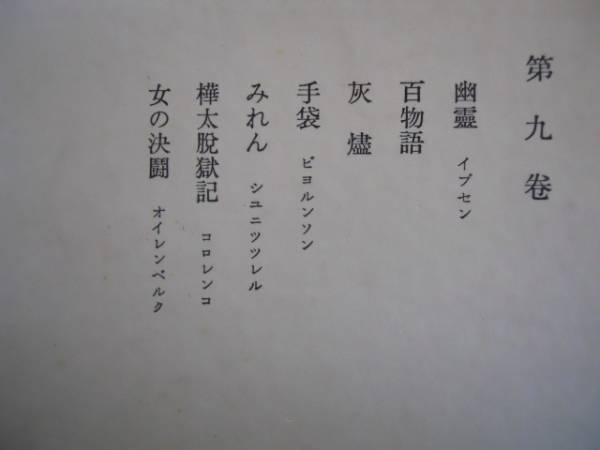 第九卷
幽靈 イプセン
百物語
灰燼
手袋 ビヨルンソン
みれん シユニツツレル
樺太脫獄記 コロレンコ
女の決鬪 オイレンベルク